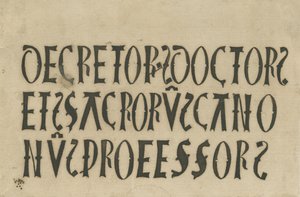 DECRETORƨDOCTORƨ
ETƨSACRORŪƨCANO
NŪƨPROFESSORƨ